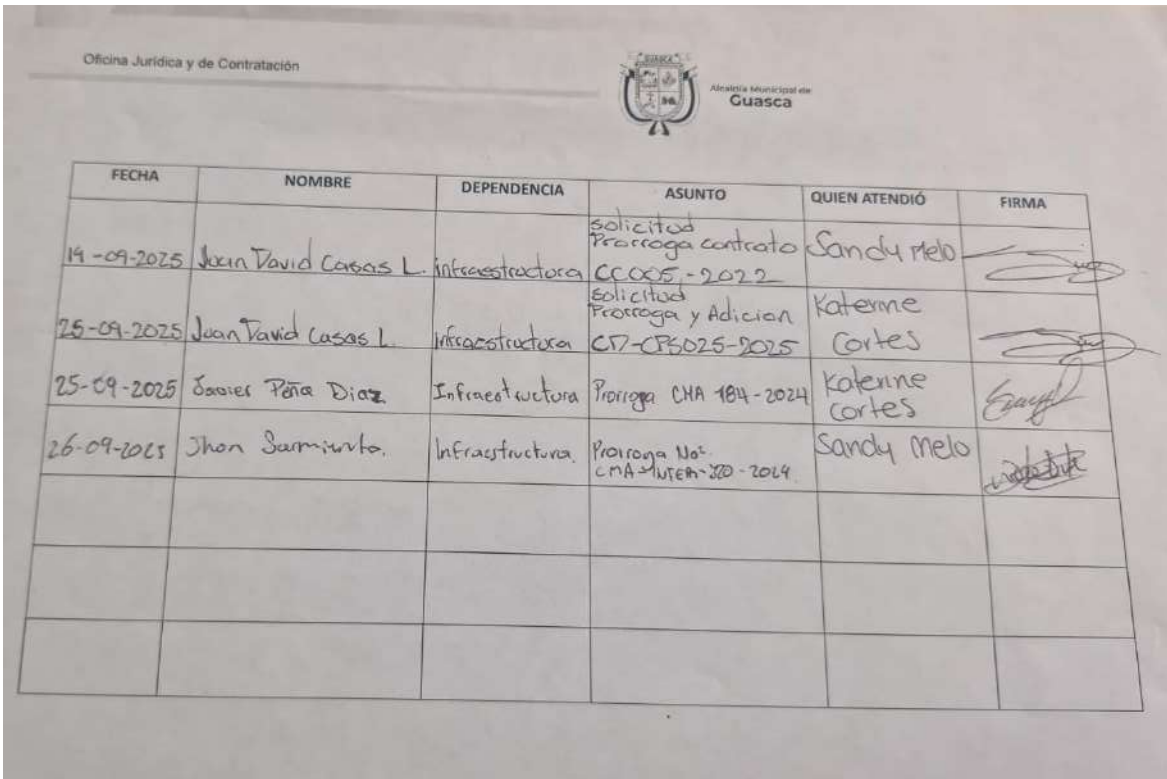 Oficina Jurídica y de Contratación
GUASCA
Alcaldía Municipal de
Guasca
FECHA NOMBRE DEPENDENCIA ASUNTO QUIEN ATENDIÓ FIRMA
19-09-2025 Juan David Casas L. infraestructura solicitud
Prorroga contrato
CC005-2022 Sandy Melo
25-09-2025 Juan David Casas L. infraestructura solicitud
Prorroga y Adicion
CD-CPS025-2025 Katerine
Cortes
25-09-2025 Javier Peña Diaz Infraestructura Prorroga CMA 184-2024 Katerine
cortes
26-09-2025 Jhon Sarmiento. Infraestructura. Prorroga No:
CMA-INTER-320-2024. Sandy Melo